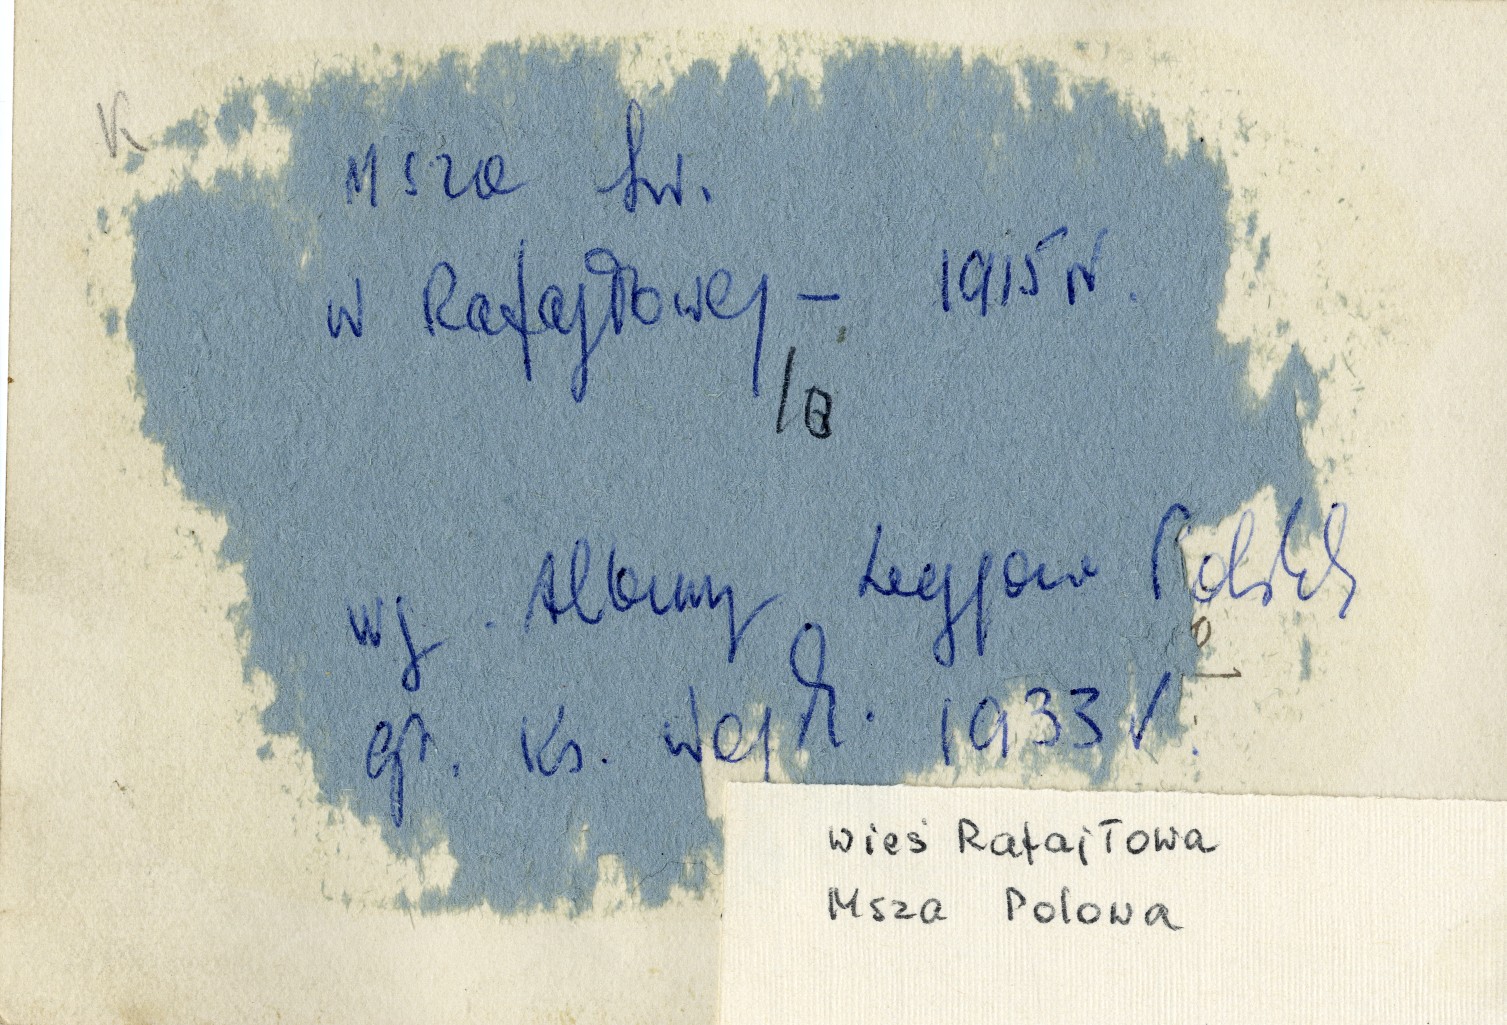 K
Msza Św.
w Rafajłowej – 1915 r.
/B
wg. Albumy Legjonów Polskich
Ks. 1933 r.
wieś Rafajłowa
Msza Polowa